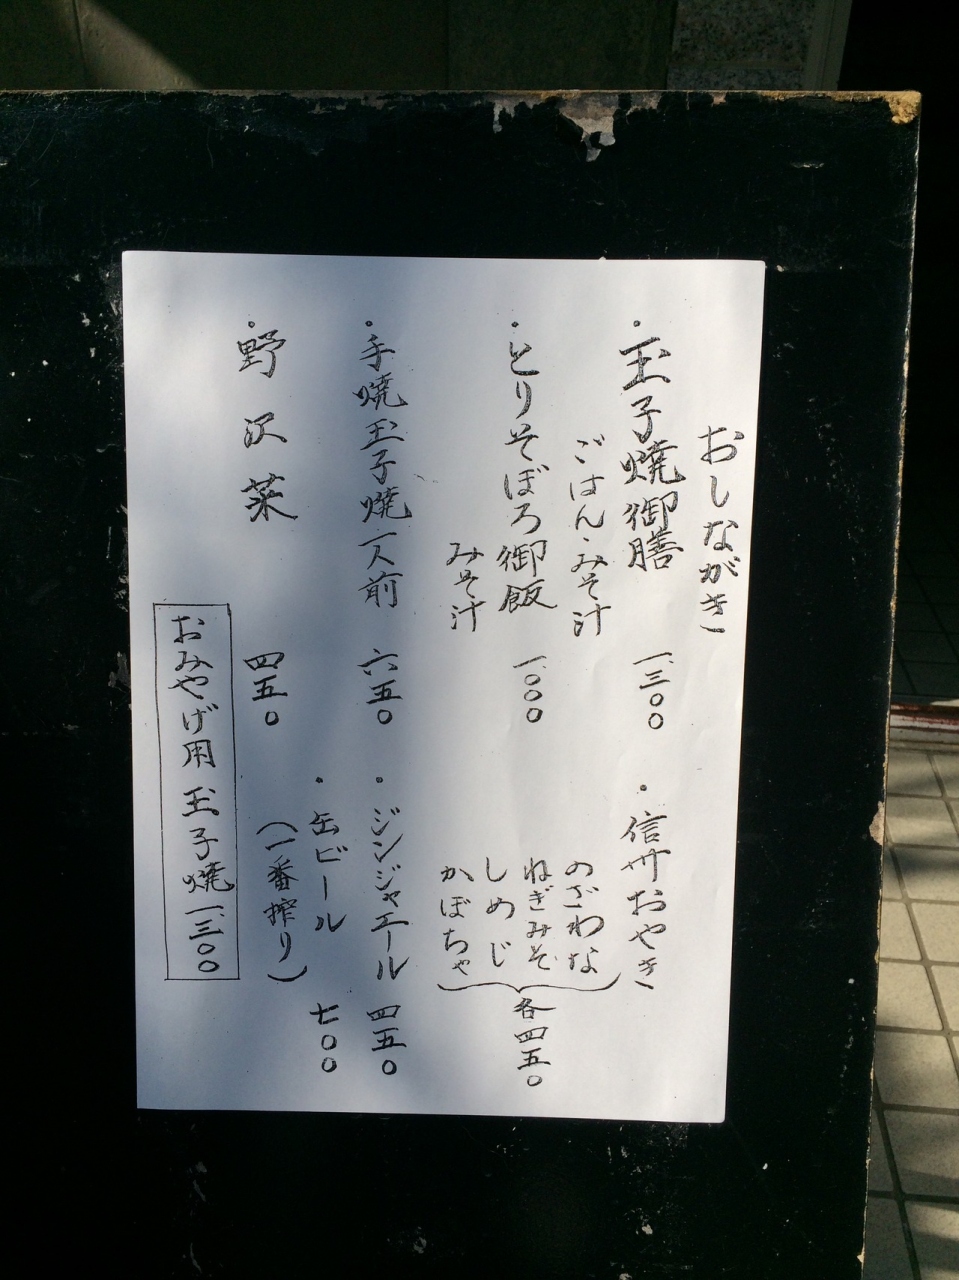 おしながき
・玉子焼御膳 一、三〇〇
ごはん・みそ汁
・とりそぼろ御飯 一、〇〇〇
みそ汁
・手焼玉子焼一人前 六五〇
・野沢菜 四五〇
・信州おやき
のざわな
ねぎみそ
しめじ
かぼちゃ
各四五〇
・ジンジャエール 四五〇
・缶ビール 七〇〇
(一番搾り)
おみやげ用 玉子焼 一、三〇〇